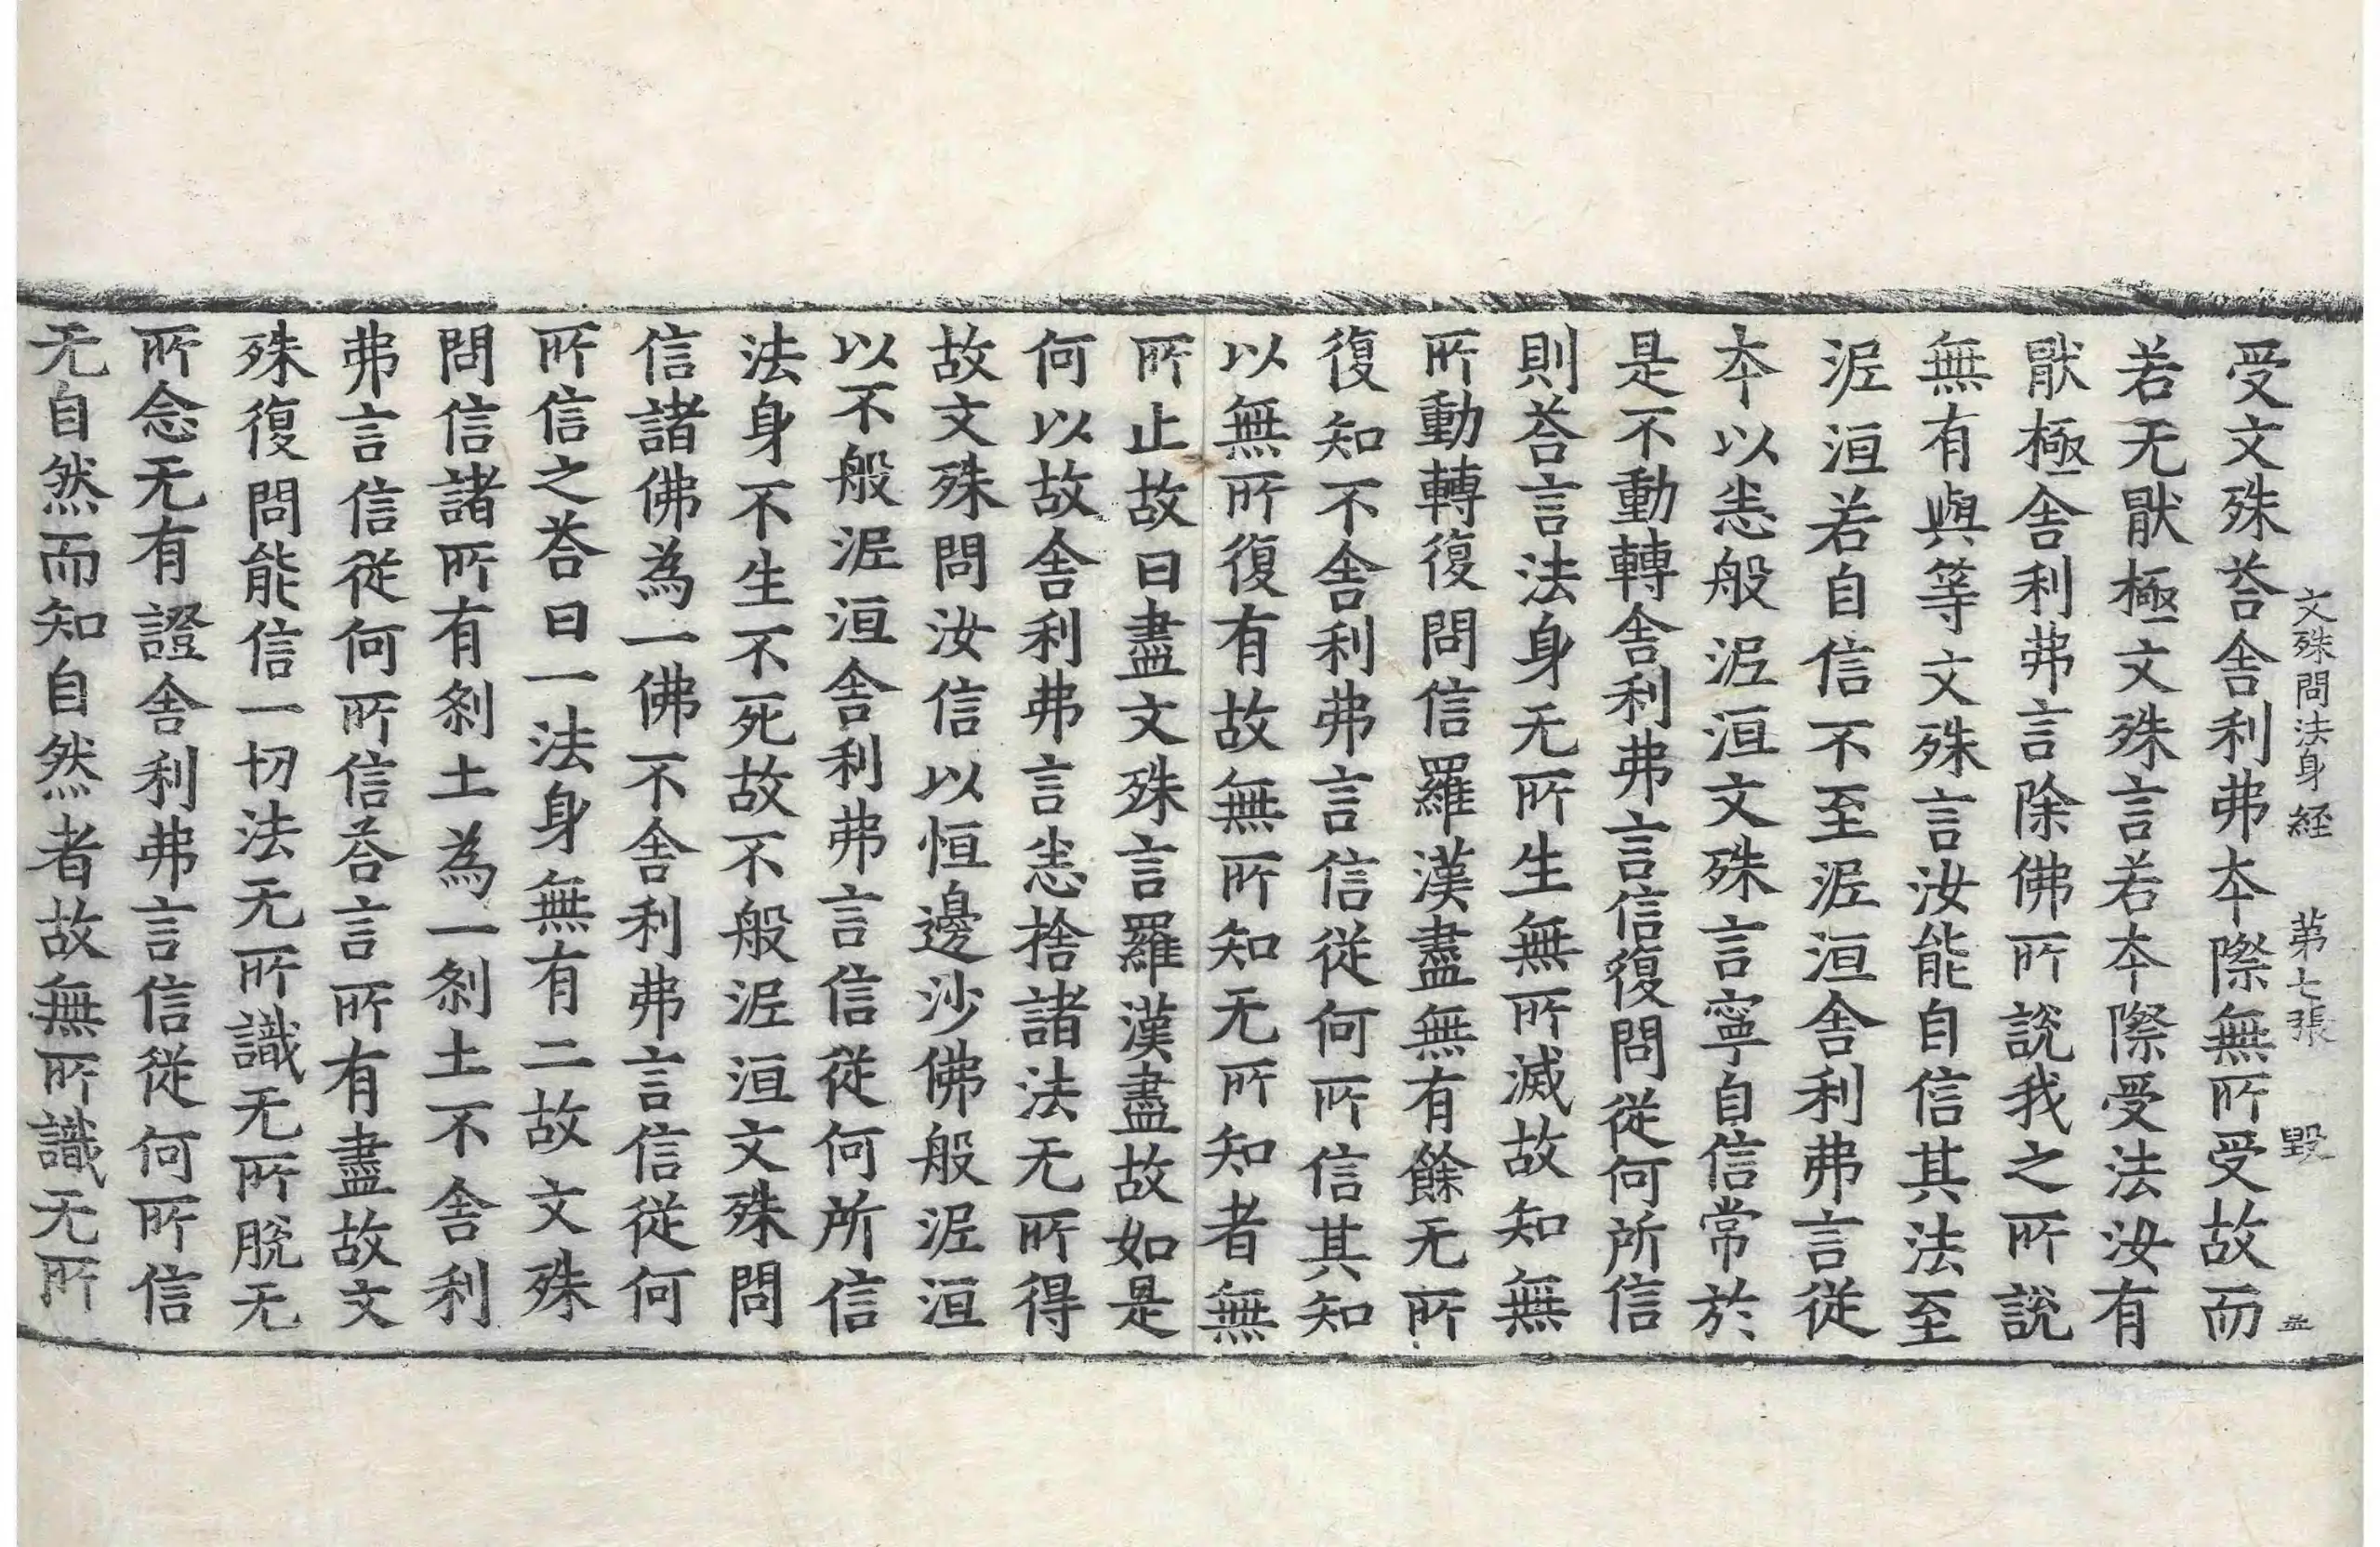 文殊問法身経　第七張　毀
受文殊荅舎利弗夲際無所受故而
若无猒極文殊言若夲際受法汝有
猒極舎利弗言除佛所說我之所說
無有與等文殊言汝能自信其法至
泥洹若自信不至泥洹舎利弗言從
夲以恙般泥洹文殊言寧自信常於
是不動轉舎利弗言信復問從何所信
則荅言法身无所生無所滅故知無
所動轉復問信羅漢盡無有餘无所
復知不舎利弗言信從何所信其知
以無所復有故無所知无所知者無
所止故曰盡文殊言羅漢盡故如是
何以故舎利弗言恙捨諸法无所得
故文殊問汝信以恒邊沙佛般泥洹
以不般泥洹舎利弗言信從何所信
法身不生不死故不般泥洹文殊問
信諸佛為一佛不舎利弗言信從何
所信之荅曰一法身無有二故文殊
問信諸所有刹土為一刹土不舎利
弗言信從何所信荅言所有盡故文
殊復問能信一切法无所識无所脫无
所念无有證舎利弗言信從何所信
无自然而知自然者故無所識无所